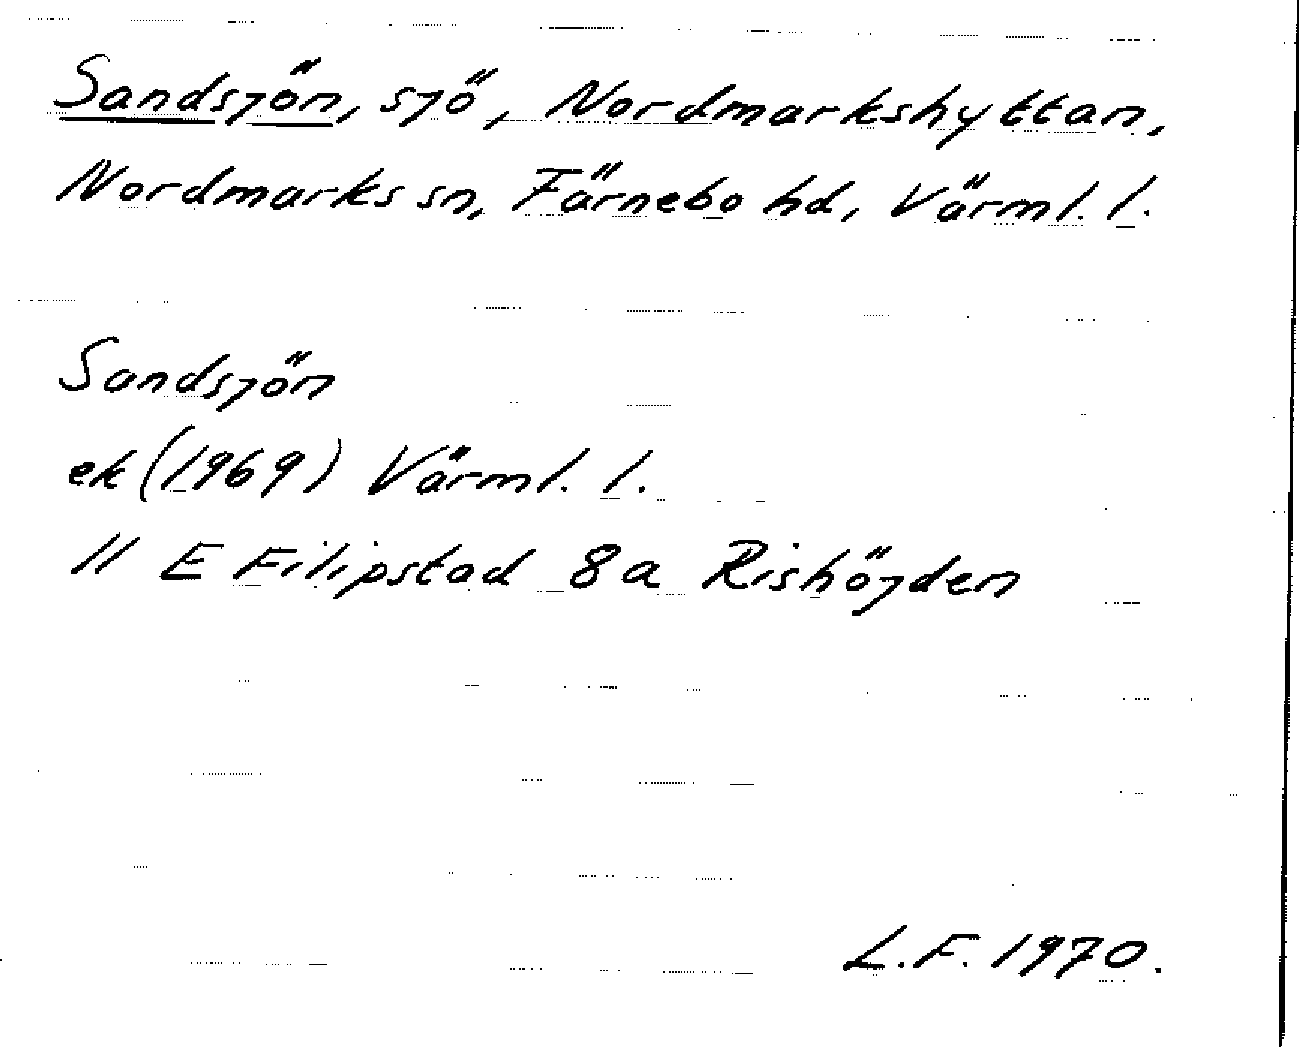 Sandsjön, sjö, Nordmarkshyttan,
Nordmarks sn, Färnebo hd, Värml. l.
Sandsjön
ek (1969) Värml. l.
11 E Filipstad 8a Rishöjden
L.F. 1970.